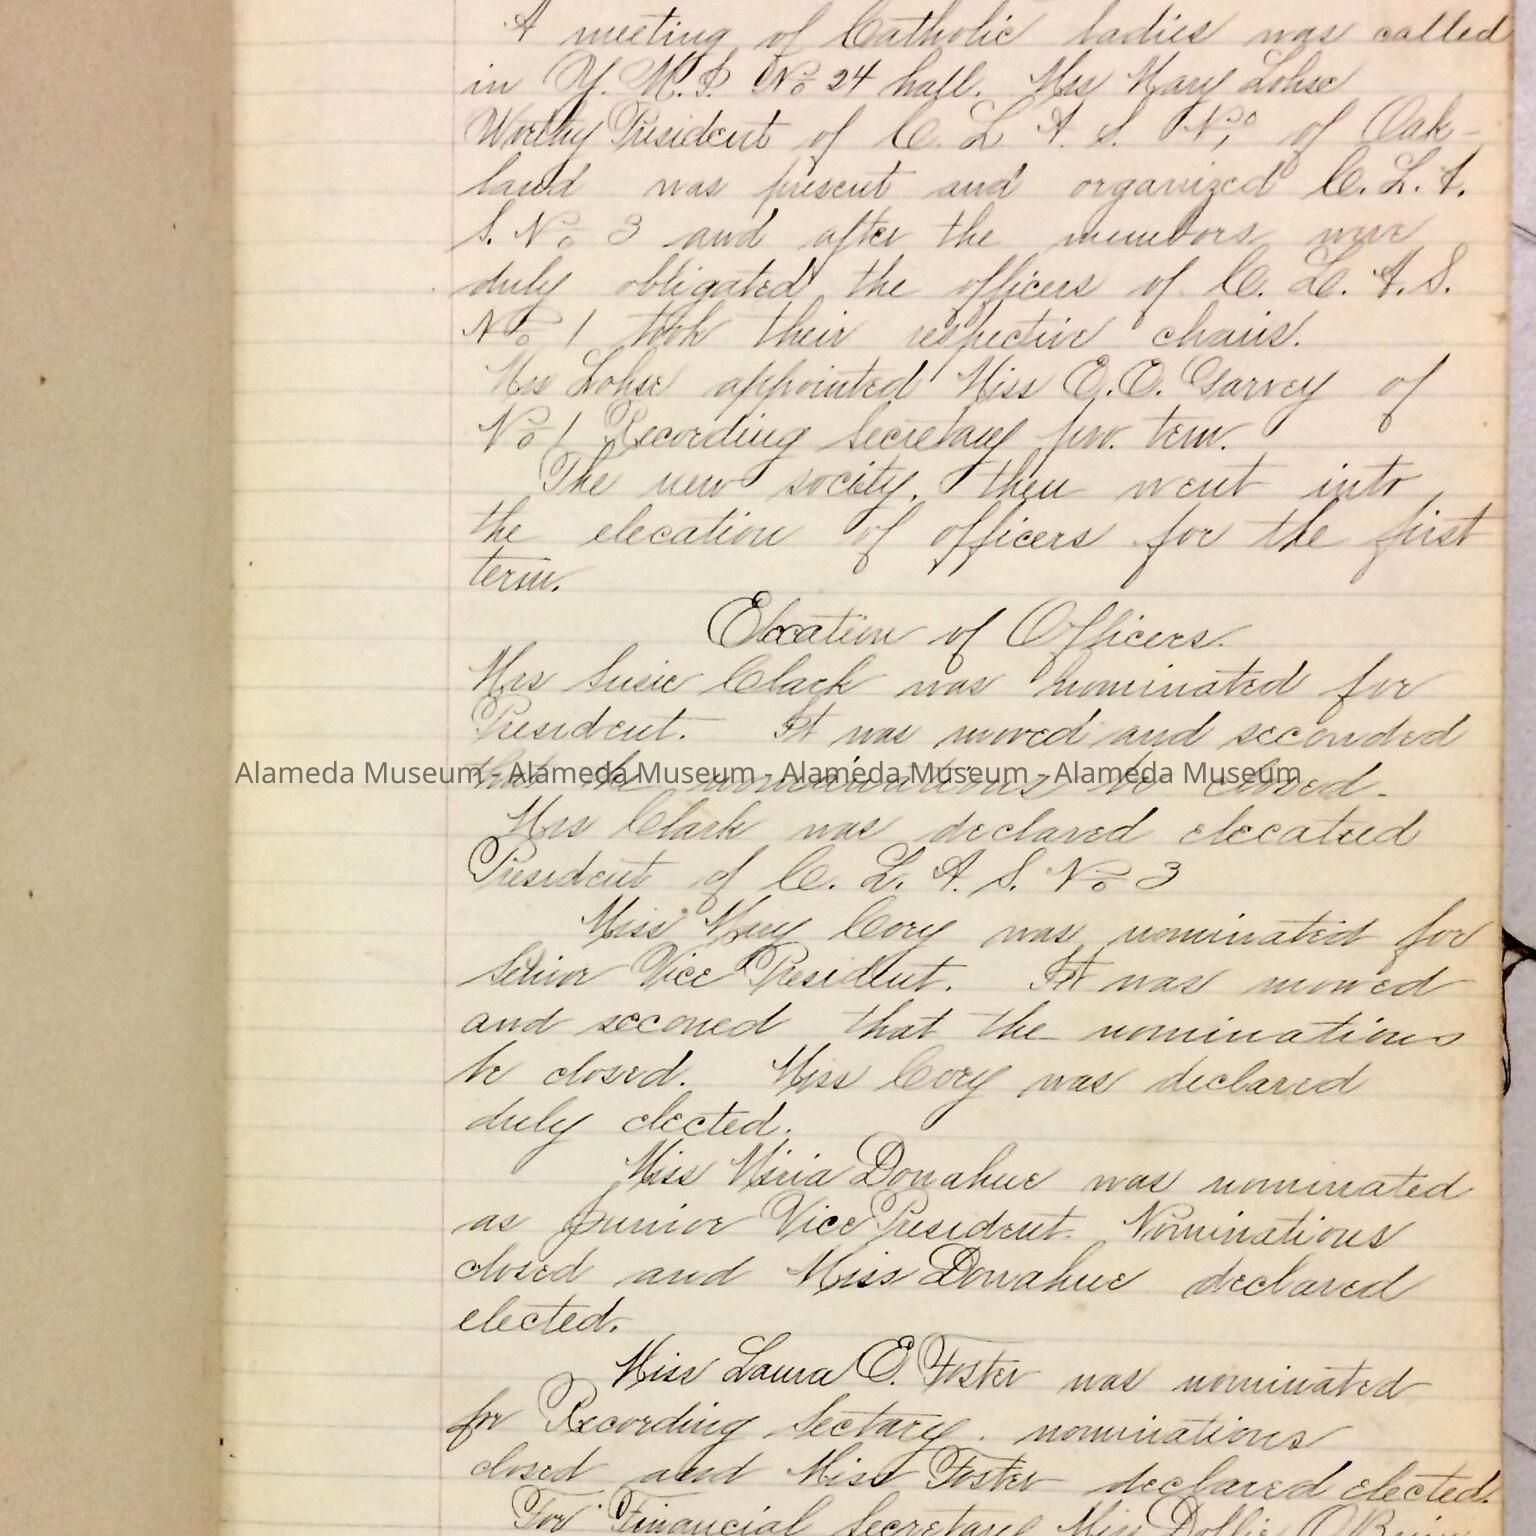 A meeting of Catholic ladies was called
in Y. M. I. No 24 hall. Mrs Mary Lohse
Worthy President of C. L. A. S. No 1, of Oak-
land was present and organized C. L. A.
S. No 3 and after the members were
duly obligated the officers of C. L. A. S.
No 1 took their respective chairs.
Mrs Lohse appointed Miss E. O. Garvey of
No 1 Recording Secretary pro. tem.
The new socity, then went into
the elecation of officers for the first
term.
Elecation of Officers.
Mrs Susie Clark was nominated for
President. It was moved and seconded
that the nominations be closed.
Alameda Museum - Alameda Museum - Alameda Museum - Alameda Museum
Mrs Clark was declared elecated
President of C. L. A. S. No 3
Miss Mary Cory was nominated for
Senior Vice President. It was moved
and seconed that the nominations
be closed. Miss Cory was declared
duly elected.
Miss Donahue was nominated
as Junior Vice President. Nominations
closed and Miss Donahue declared
elected.
Miss Laura E. Foster was nominated
for Recording Sectary. nominations
closed and Miss Foster declared elected.
For Financial Secretary Miss Dollie